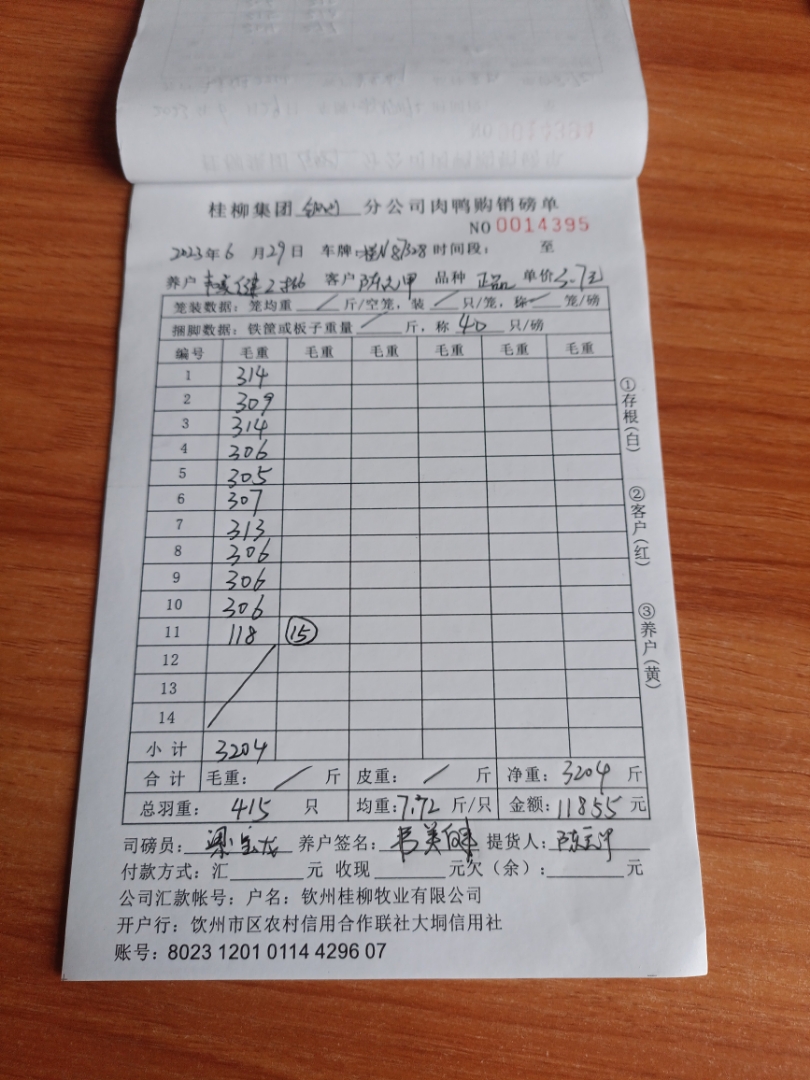 桂柳集团 钦州 分公司肉鸭购销磅单
NO 0014395
2023年6月29日 车牌: 桂N87328 时间段: 至
养户 韦美健2批 客户 陈云甲 品种 正品 单价3.7元
笼装数据: 笼均重 / 斤/空笼, 装 / 只/笼, 称 / 笼/磅
捆脚数据: 铁筐或板子重量 / 斤, 称 40 只/磅
编号 毛重 毛重 毛重 毛重 毛重 毛重
1 314
2 309
3 314
4 306
5 305
6 307
7 313
8 306
9 306
10 306
11 118 15
12
13
14
小计 3204
合计 毛重: / 斤 皮重: / 斤 净重: 3204 斤
总羽重: 415 只 均重: 7.72 斤/只 金额: 11855 元
司磅员: 梁宝龙 养户签名: 韦美健 提货人: 陈云甲
付款方式: 汇 元 收现 元欠(余): 元
公司汇款帐号: 户名: 钦州桂柳牧业有限公司
开户行: 钦州市区农村信用合作联社大垌信用社
账号: 8023 1201 0114 4296 07
①存根(白)
②客户(红)
③养户(黄)